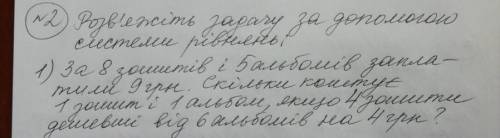 №2 Розв'яжіть задачу за допомогою
системи рівнянь:
1) За 8 зошитів і 5 альбомів запла-
тили 9 грн. Скільки коштує
1 зошит і 1 альбом, якщо 4 зошити
дешевші від 6 альбомів на 4 грн?